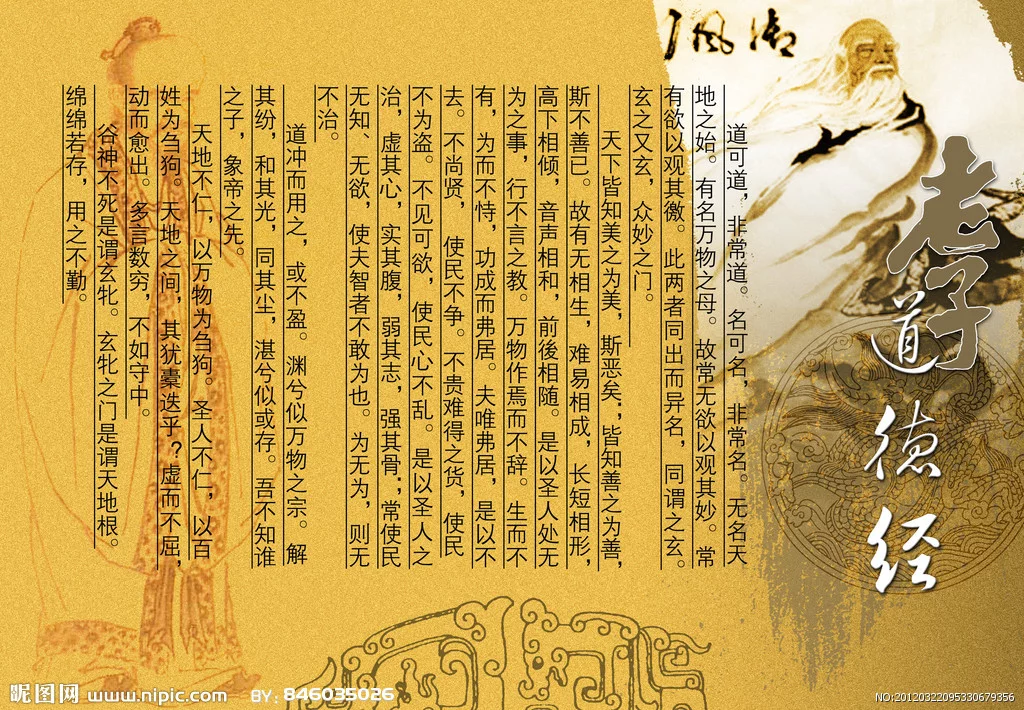 御風
老子
道德经
道可道，非常道。名可名，非常名。无名天
地之始。有名万物之母。故常无欲以观其妙。常
有欲以观其徼。此两者同出而异名，同谓之玄。
玄之又玄，众妙之门。
天下皆知美之为美，斯恶矣；皆知善之为善，
斯不善已。故有无相生，难易相成，长短相形，
高下相倾，音声相和，前後相随。是以圣人处无
为之事，行不言之教。万物作焉而不辞。生而不
有，为而不恃，功成而弗居。夫唯弗居，是以不
去。不尚贤，使民不争。不贵难得之货，使民
不为盗。不见可欲，使民心不乱。是以圣人之
治，虚其心，实其腹，弱其志，强其骨；常使民
无知、无欲，使夫智者不敢为也。为无为，则无
不治。
道冲而用之，或不盈。渊兮似万物之宗。解
其纷，和其光，同其尘，湛兮似或存。吾不知谁
之子，象帝之先。
天地不仁，以万物为刍狗。圣人不仁，以百
姓为刍狗。天地之间，其犹橐迭乎？虚而不屈，
动而愈出。多言数穷，不如守中。
谷神不死是谓玄牝。玄牝之门是谓天地根。
绵绵若存，用之不勤。
昵图网 www.nipic.com BY: 846035026
NO:20120322095330679356